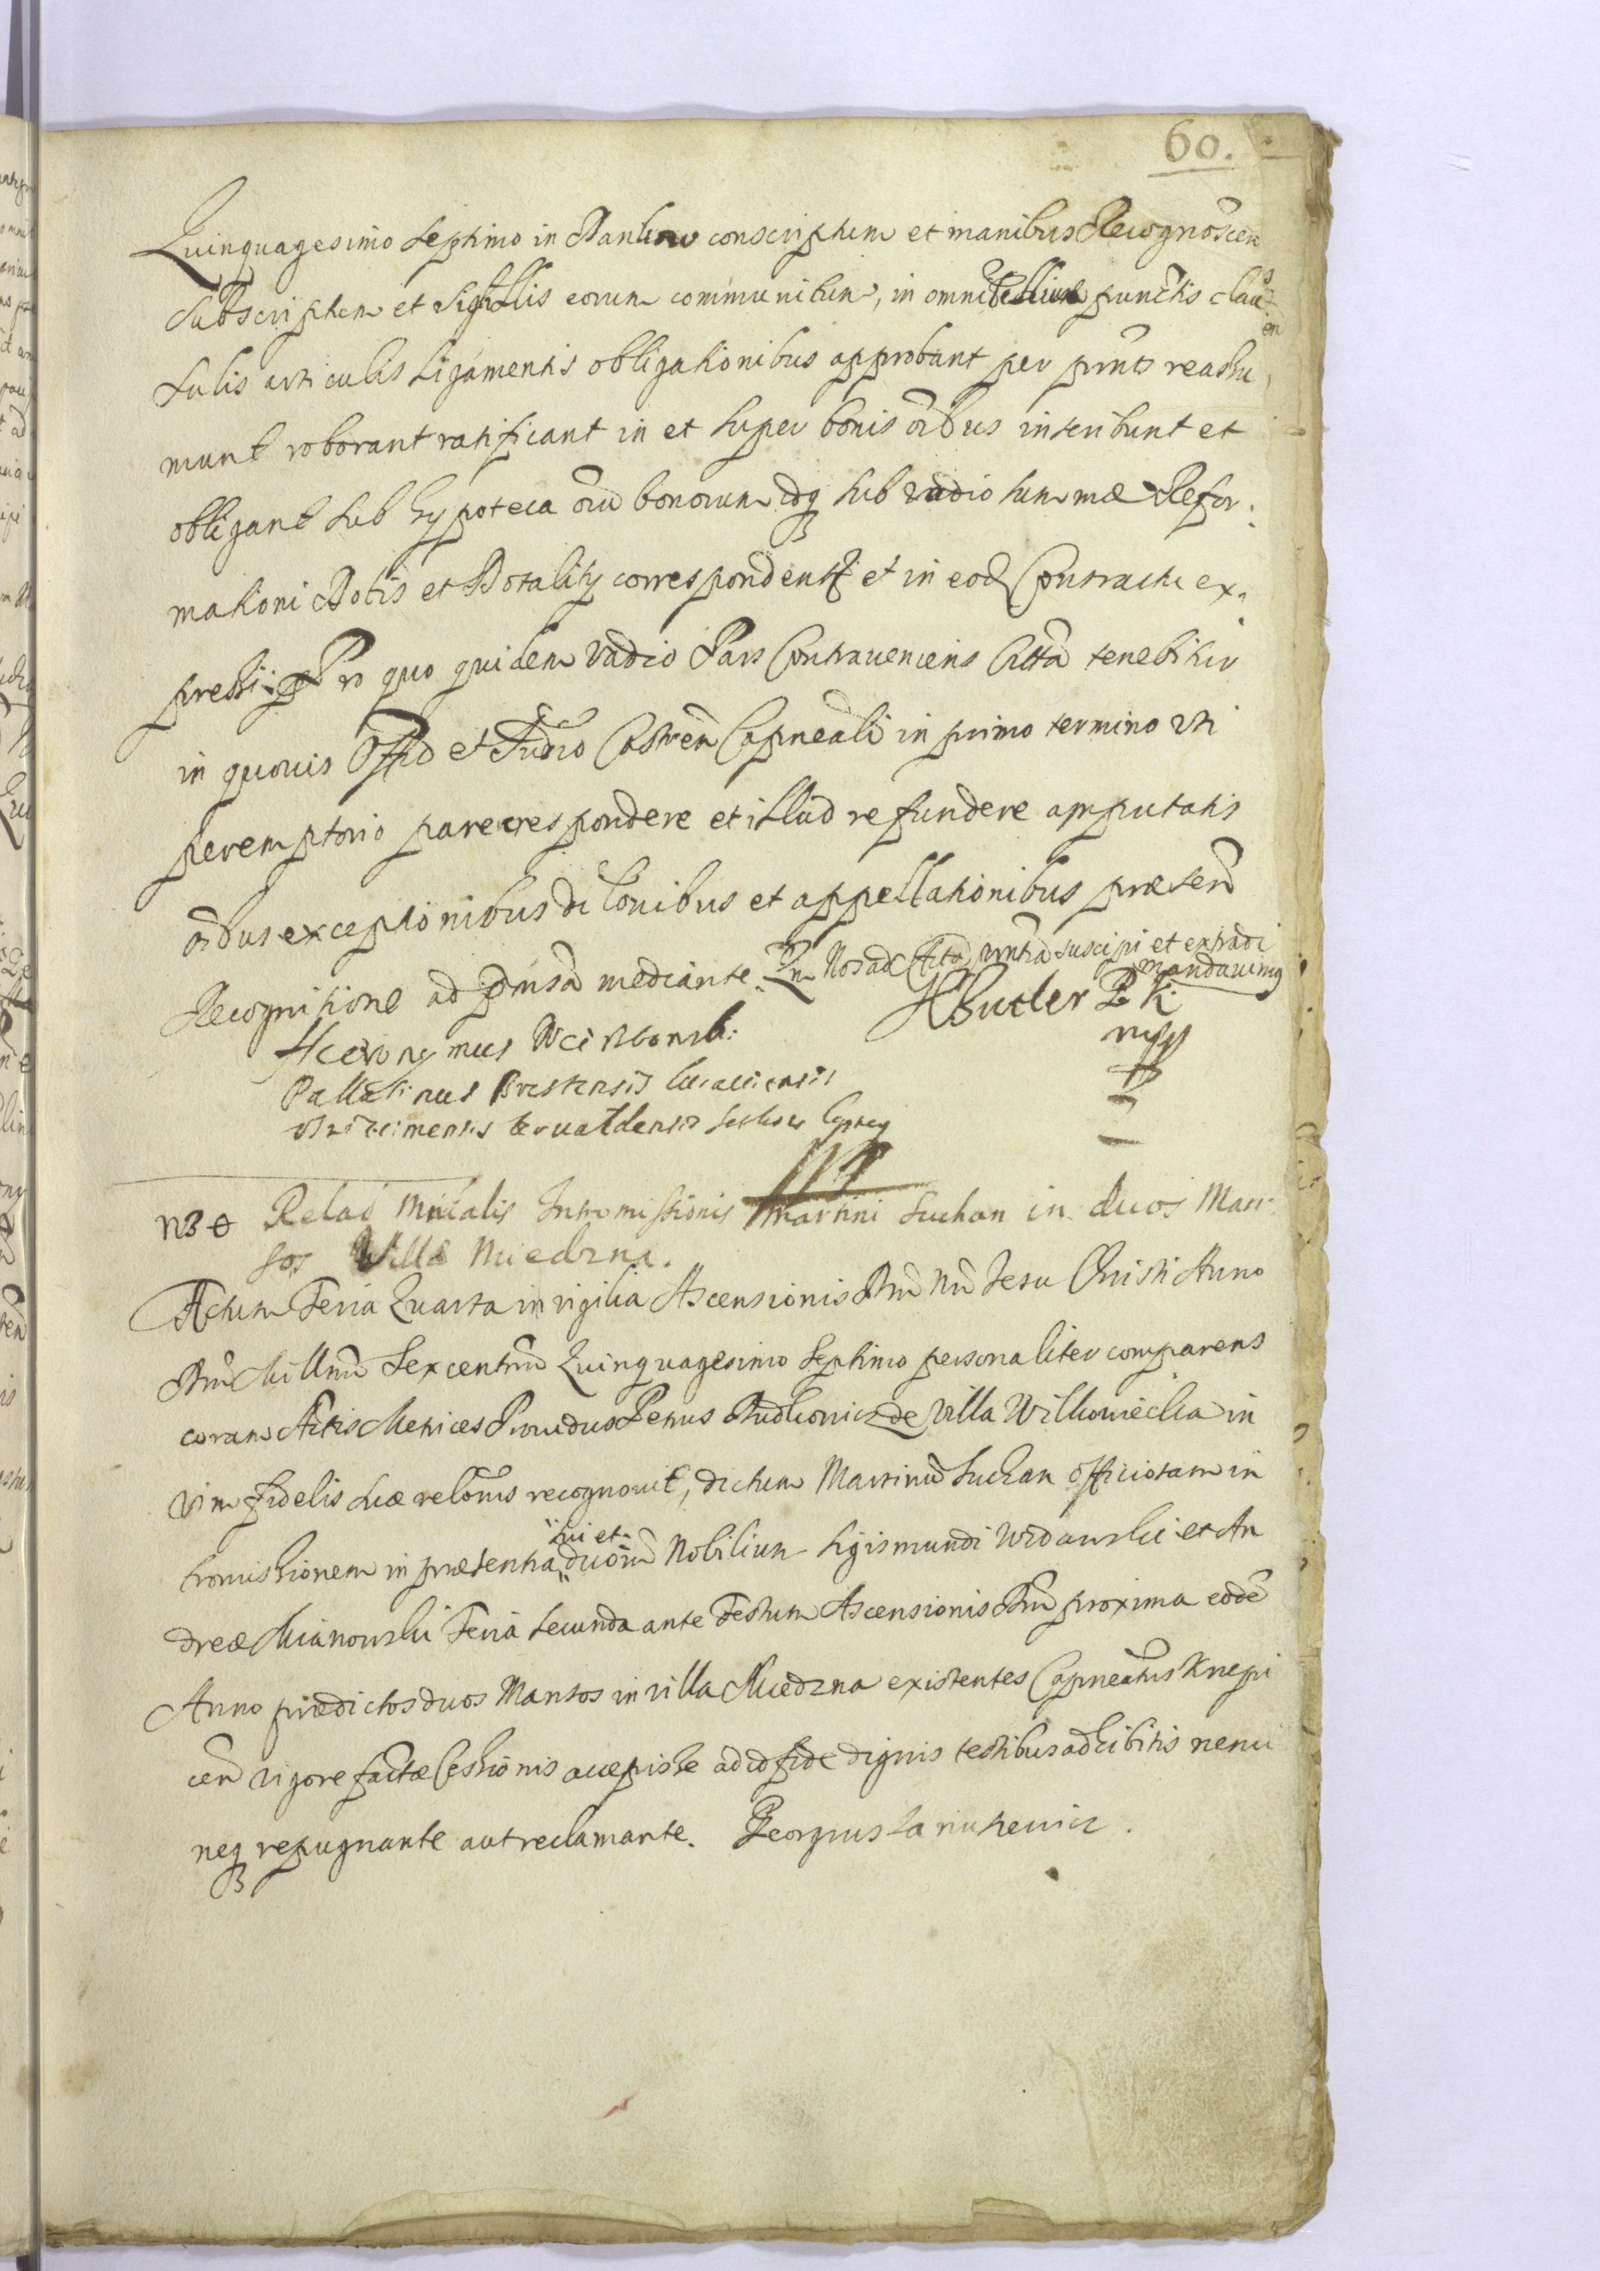 60.
Quinquagesimo Septimo in Dankow conscriptum et manibus Recognoscen
Subscriptum et Sigillis eorum communitum, in omnibus illius punctis clau
sulis articulis ligamentis obligationibus approbant per prnts reassu
munt roborant ratificant in et super bonis oĩbus inscribunt et
obligant sub hypoteca oĩu bonorum idq sub vadio summæ Refor:
mationi Dotis et Dotality correspondenti et in eod Contractu ex:
pressi: Pro quo quidem vadio Pars Contraveniens Citta tenebitur
in quovis Officio et Judicio Castren Capneali in primo termino uti
peremptorio parere respondere et illud refundere amputatis
oĩbus exceptionibus dilõnibus et appellationibus præsenti
Recognitione ad præmissa mediante. Qm Nos ad Acta prntia suscipi et extradi
mandavimus
HButler P K:
mpp
Hieronymus
Pallatinus Brestensis Cuiaviensis
Relaõ Mntalis Intromissionis Martini Suchan in duos Man:
sos Villæ Miedzna.
Actum Feria Quarta in vigilia Ascensionis Dni Nri Jesu Christi Anno
Dni Millmo Sexcentmo Quinquagesimo Septimo personaliter comparens
coram Actis Metrices Providus Petrus Dudkowicz de villa Wilkowiecka in
vim fidelis suæ relõnis recognovit, dictum Martinũ Suchan officiosam in
sui et
tromissionem in præsentia duorũ Nobilium Sigismundi Widawski et An
dreæ Mianowski Feria Secunda ante Festum Ascensionis Dni proxima eodẽ
Anno prædictos duos Mansos in villa Miedzna existentes Capneatus Krzepi
cen vigore factæ Cessionis accepisse ad id fide dignis testibus adhibitis nemi
neq repugnante aut reclamante. Georgius